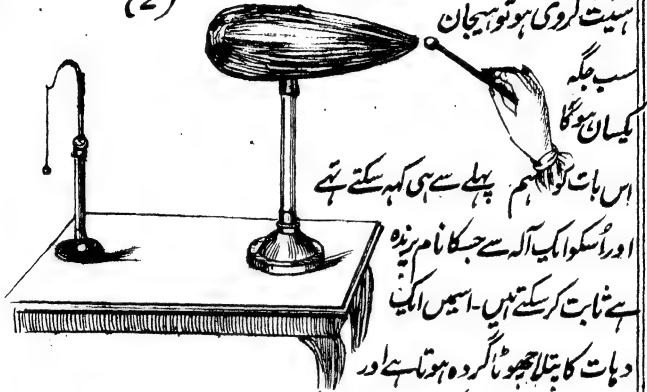 (۲)
ہیئت کروی ہو تو ہیجان
سب جگہ
یکسان ہوگا
اس بات کو ہم پہلے سے ہی کہہ سکتے تہے
اور اُسکو ایک آلہ سے جسکا نام پرندہ
ہے ثابت کر سکتے ہیں - اسمیں ایک
دہات کا پتلا چھوٹا گردہ ہوتا ہے اور